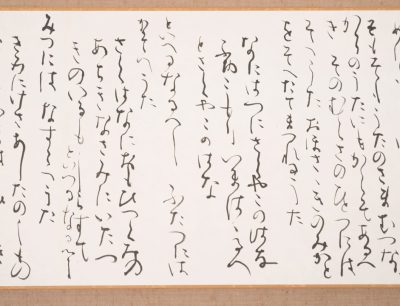 そもそもうたのさまむつな
からのうたにもかくそあるへ
き そのむくさのひとつには
そへうた おほささきのみかと
をそへたてまつれるうた
なにはつにさくやこのはな
ふゆこもりいまははるへ
とさくやこのはな
といへるなるへし ふたつには
かそへうた
さくはなにおもひつくみの
あちきなさみにいたつ
きのいるもしらすて
といへるなるへし
みつには なすらへうた
きみにけさあしたのしもの